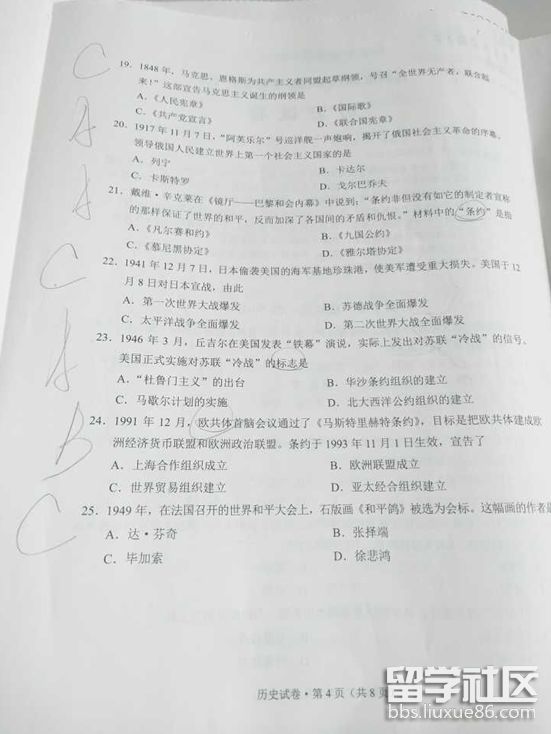 C
19. 1848 年，马克思、恩格斯为共产主义者同盟起草纲领，号召“全世界无产者，联合起
来！”这部宣告马克思主义诞生的纲领是
A.《人民宪章》 B.《国际歌》
C.《共产党宣言》 D.《联合国宪章》
A
20. 1917 年 11 月 7 日，“阿芙乐尔”号巡洋舰一声炮响，揭开了俄国社会主义革命的序幕。
领导俄国人民建立世界上第一个社会主义国家的是
A. 列宁 B. 卡达尔
C. 卡斯特罗 D. 戈尔巴乔夫
A
21. 戴维·辛克莱在《镜厅——巴黎和会内幕》中说到：“条约非但没有如它的制定者宣称
的那样保证了世界的和平，反而加深了各国间的矛盾和仇恨。”材料中的“条约”是指
A.《凡尔赛和约》 B.《九国公约》
C.《慕尼黑协定》 D.《雅尔塔协定》
C
22. 1941 年 12 月 7 日，日本偷袭美国的海军基地珍珠港，使美军遭受重大损失。美国于 12
月 8 日对日本宣战，由此
A. 第一次世界大战爆发 B. 苏德战争全面爆发
C. 太平洋战争全面爆发 D. 第二次世界大战全面爆发
A
23. 1946 年 3 月，丘吉尔在美国发表“铁幕”演说，实际上发出对苏联“冷战”的信号。
美国正式实施对苏联“冷战”的标志是
A. “杜鲁门主义”的出台 B. 华沙条约组织的建立
C. 马歇尔计划的实施 D. 北大西洋公约组织的建立
B
24. 1991 年 12 月，欧共体首脑会议通过了《马斯特里赫特条约》，目标是把欧共体建成欧
洲经济货币联盟和欧洲政治联盟。条约于 1993 年 11 月 1 日生效，宣告了
A. 上海合作组织成立 B. 欧洲联盟成立
C. 世界贸易组织建立 D. 亚太经合组织建立
C
25. 1949 年，在法国召开的世界和平大会上，石版画《和平鸽》被选为会标。这幅画的作者是
A. 达·芬奇 B. 张择端
C. 毕加索 D. 徐悲鸿
历史试卷·第 4 页（共 8 页
留学社区
bbs.liuxue86.com